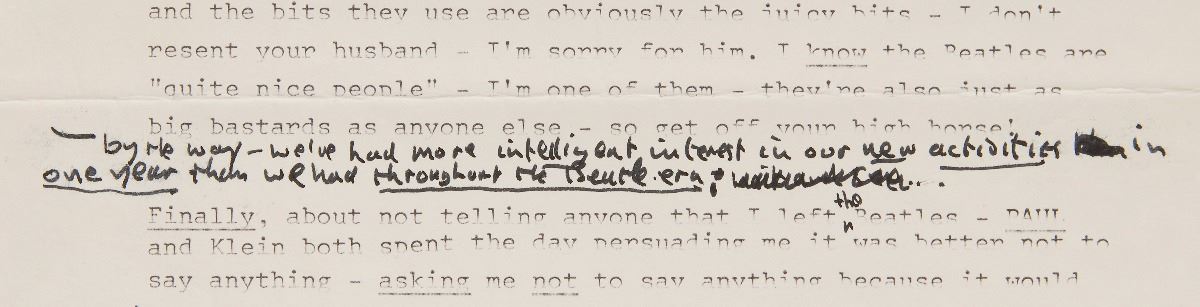 and the bits they use are obviously the juicy bits - I don't
resent your husband - I'm sorry for him. I know the Beatles are
"quite nice people" - I'm one of them - they're also just as
big bastards as anyone else - so get off your high horse!
by the way - we've had more intelligent interest in our new activities in
one year than we had throughout the Beatle era
Finally, about not telling anyone that I left the Beatles - PAUL
and Klein both spent the day persuading me it was better not to
say anything - asking me not to say anything because it would